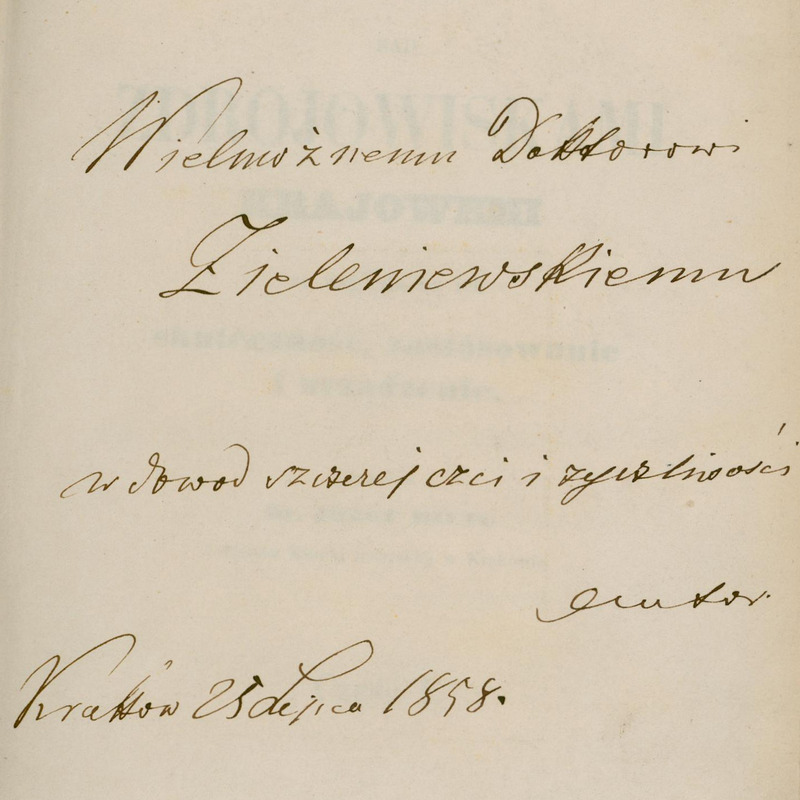 Wielmożnemu Doktorowi
Zieleniewskiemu
w dowod szczerej czci i życzliwości
Autor.
Kraków 25 Lipca 1858.